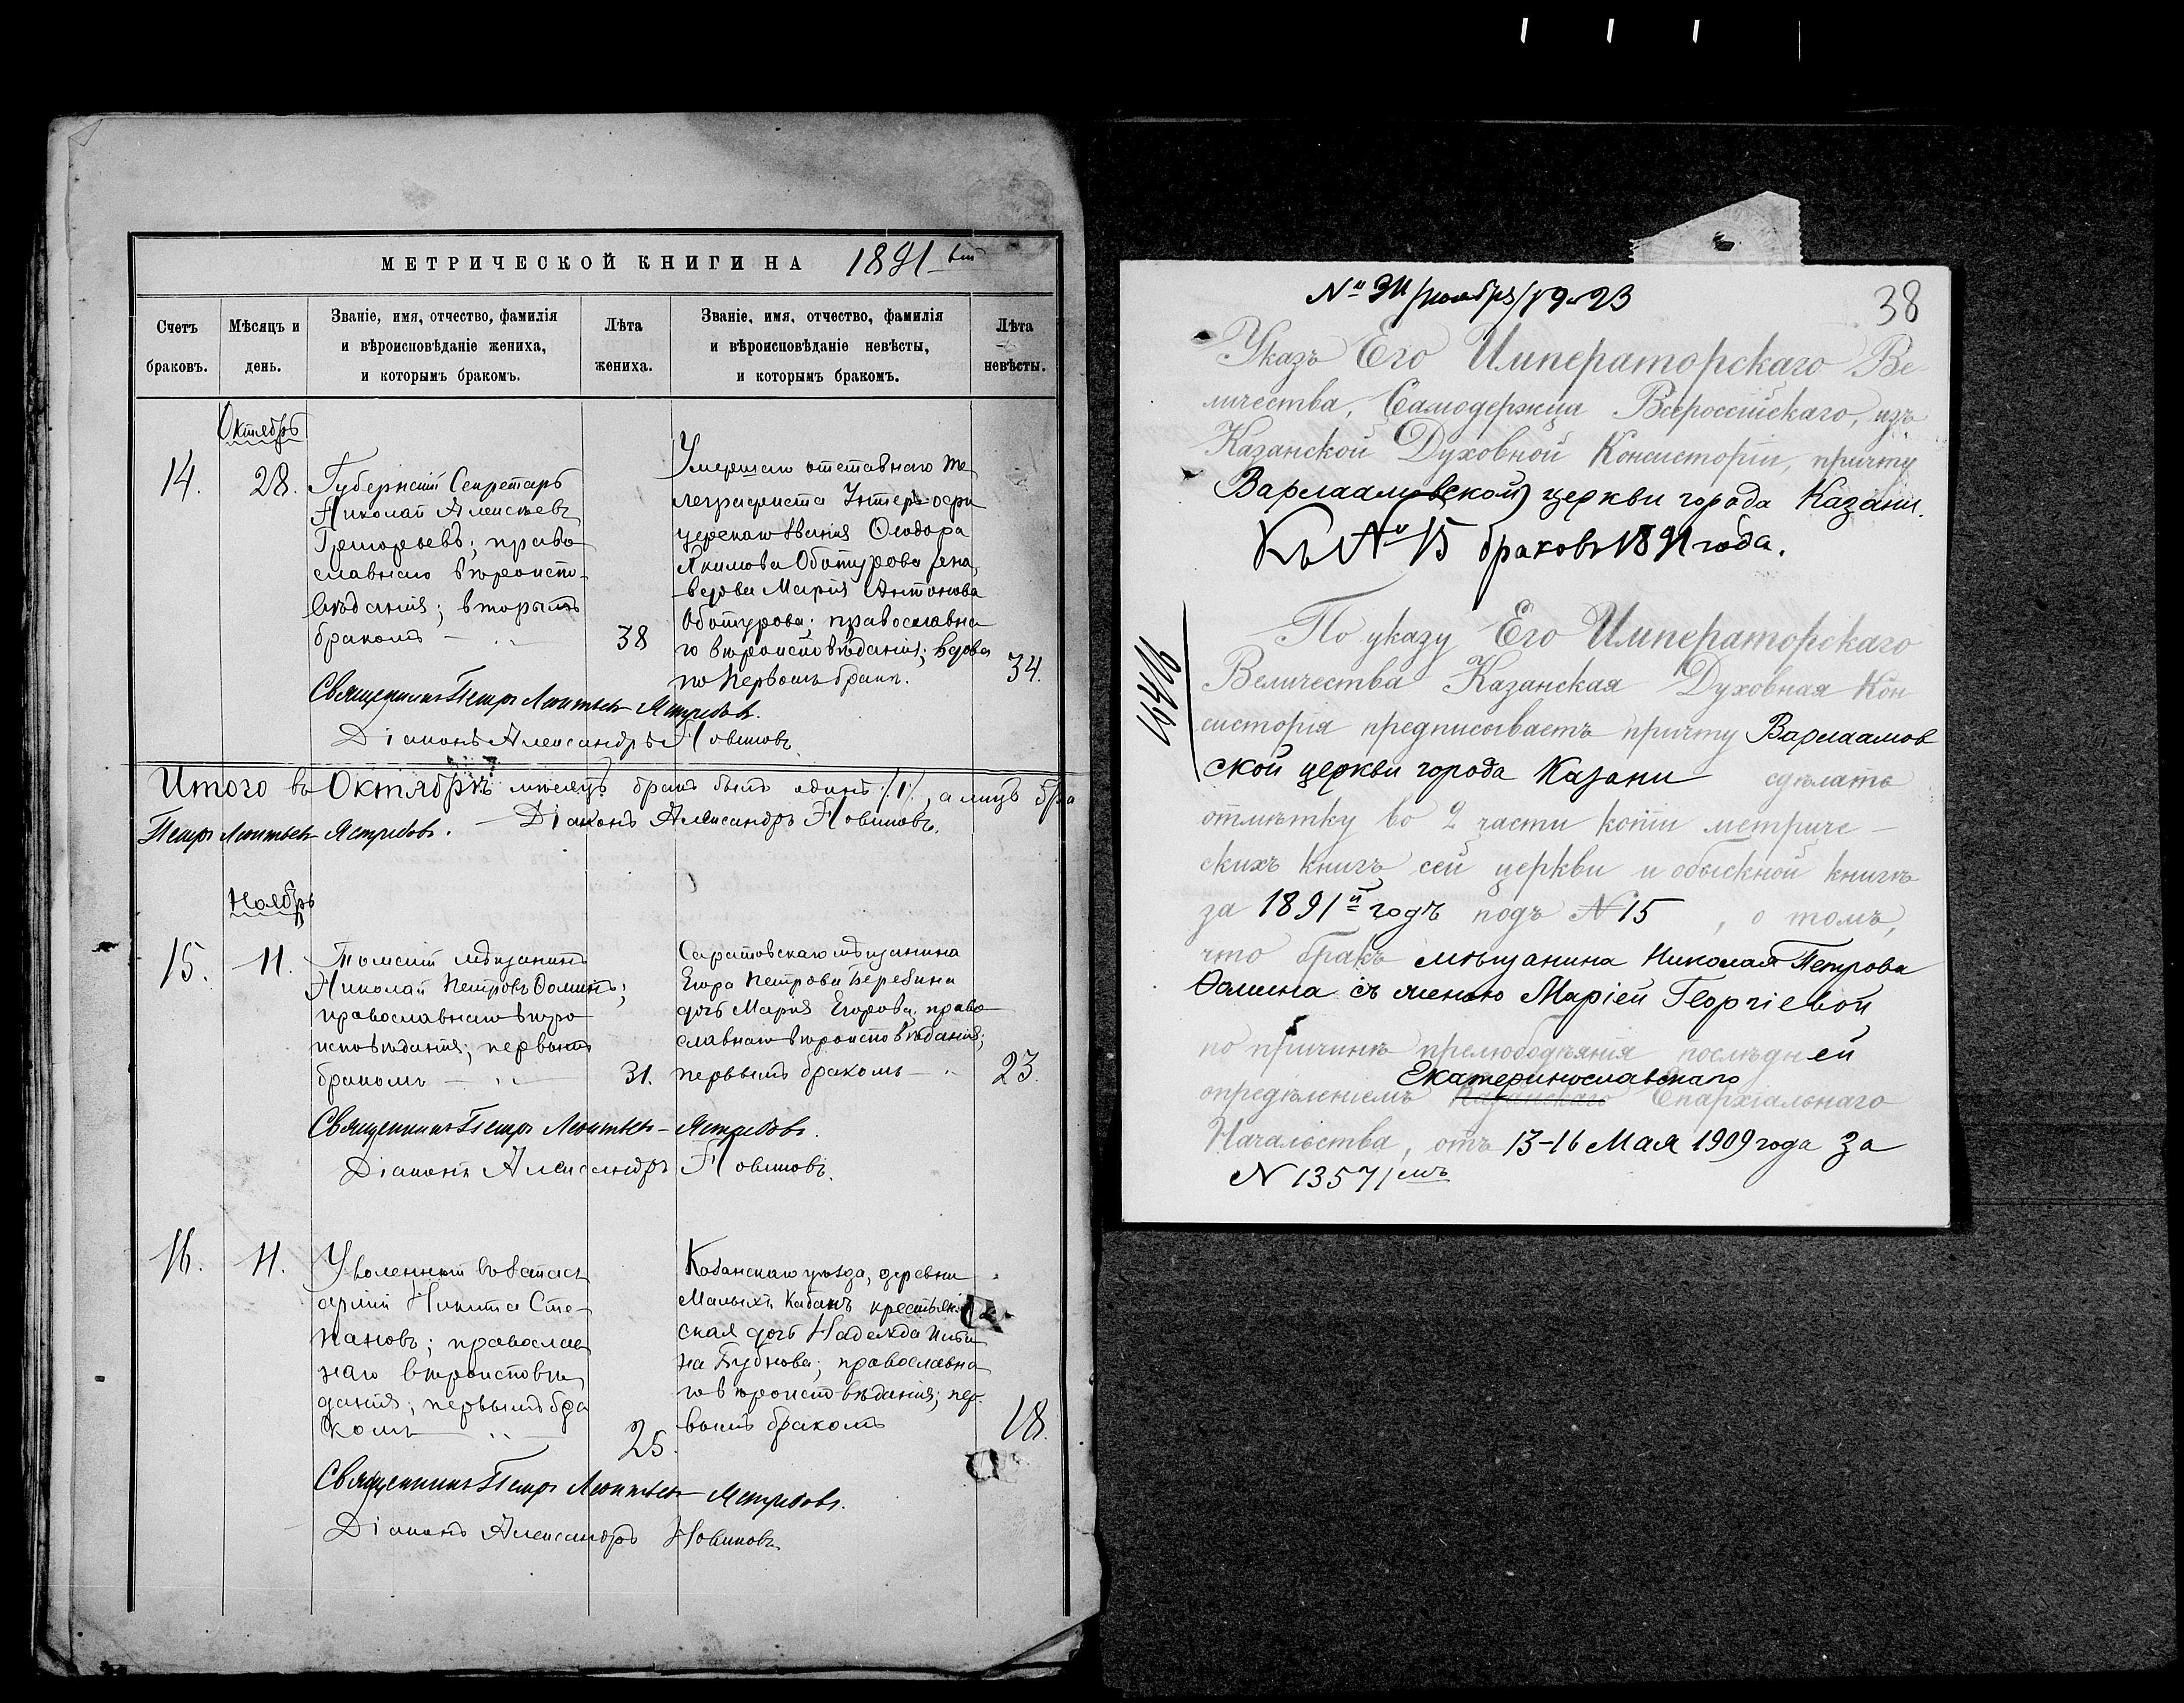 МЕТРИЧЕСКОЙ КНИГИ НА 1891-ый
Счетъ браковъ.
Мѣсяцъ и день.
Званіе, имя, отчество, фамилія и вѣроисповѣданіе жениха, и которымъ бракомъ.
Лѣта жениха.
Званіе, имя, отчество, фамилія и вѣроисповѣданіе невѣсты, и которымъ бракомъ.
Лѣта невѣсты.
Октябрь
14.
28.
Губернскій Секретарь
Николай Алексѣевъ
Григорьевъ; право
славнаго вѣроиспо-
вѣданія; вторымъ
бракомъ
38
Умершаго отставнаго те
леграфиста Унтеръ-офи
церскаго званія Ѳеодора
Якимова Обатурова жена,
вдова Марія Антонова
Обатурова; православна
го вѣроисповѣданія; вдова
по первомъ бракѣ.
34.
Священникъ Петръ Леонтьевъ Ястребовъ.
Діаконъ Александръ Новиковъ.
Итого въ Октябрѣ мѣсяцѣ бракъ былъ одинъ /1/, а лицъ бра
Петръ Леонтьевъ Ястребовъ. Діаконъ Александръ Новиковъ.
Ноябрь
15.
11.
Томскій мѣщанинъ
Николай Петровъ Ѳоминъ;
православнаго вѣро
исповѣданія; первымъ
бракомъ
31.
Саратовскаго мѣщанина
Егора Петрова
дочь Марія Егорова; право
славнаго вѣроисповѣданія;
первымъ бракомъ
23.
Священникъ Петръ Леонтьевъ Ястребовъ.
Діаконъ Александръ Новиковъ.
16.
11.
Уволенный въ запасъ
арміи Никита Сте-
пановъ; православ
наго вѣроисповѣ
данія; первымъ бра
комъ
25.
уѣзда, деревни
Малыхъ Кабанъ крестьян
ская дочь Надежда
на Бубнова; православна
го вѣроисповѣданія; пер-
вымъ бракомъ
18.
Священникъ Петръ Леонтьевъ Ястребовъ.
Діаконъ Александръ Новиковъ.
38
Указъ Его Императорскаго Ве
личества, Самодержца Всероссійскаго, изъ
Казанской Духовной Консисторіи, причту
Варлаамовской церкви города Казани.
Къ № 15 браковъ 1891 года.
По указу Его Императорскаго
Величества Казанская Духовная Кон
систорія предписываетъ причту Варлаамов
ской церкви города Казани сдѣлать
отмѣтку во 2 части копіи метриче-
скихъ книгъ сей церкви и обыскной книгѣ
за 1891й годъ подъ № 15, о томъ,
что бракъ мѣщанина Николая Петрова
Ѳомина съ женою Маріей Георгіевой
по причинѣ прелюбодѣянія послѣдней
Екатеринославскаго
опредѣленіемъ Казанскаго Епархіальнаго
Начальства, отъ 13-16 Мая 1909 года за
№ 13571мъ